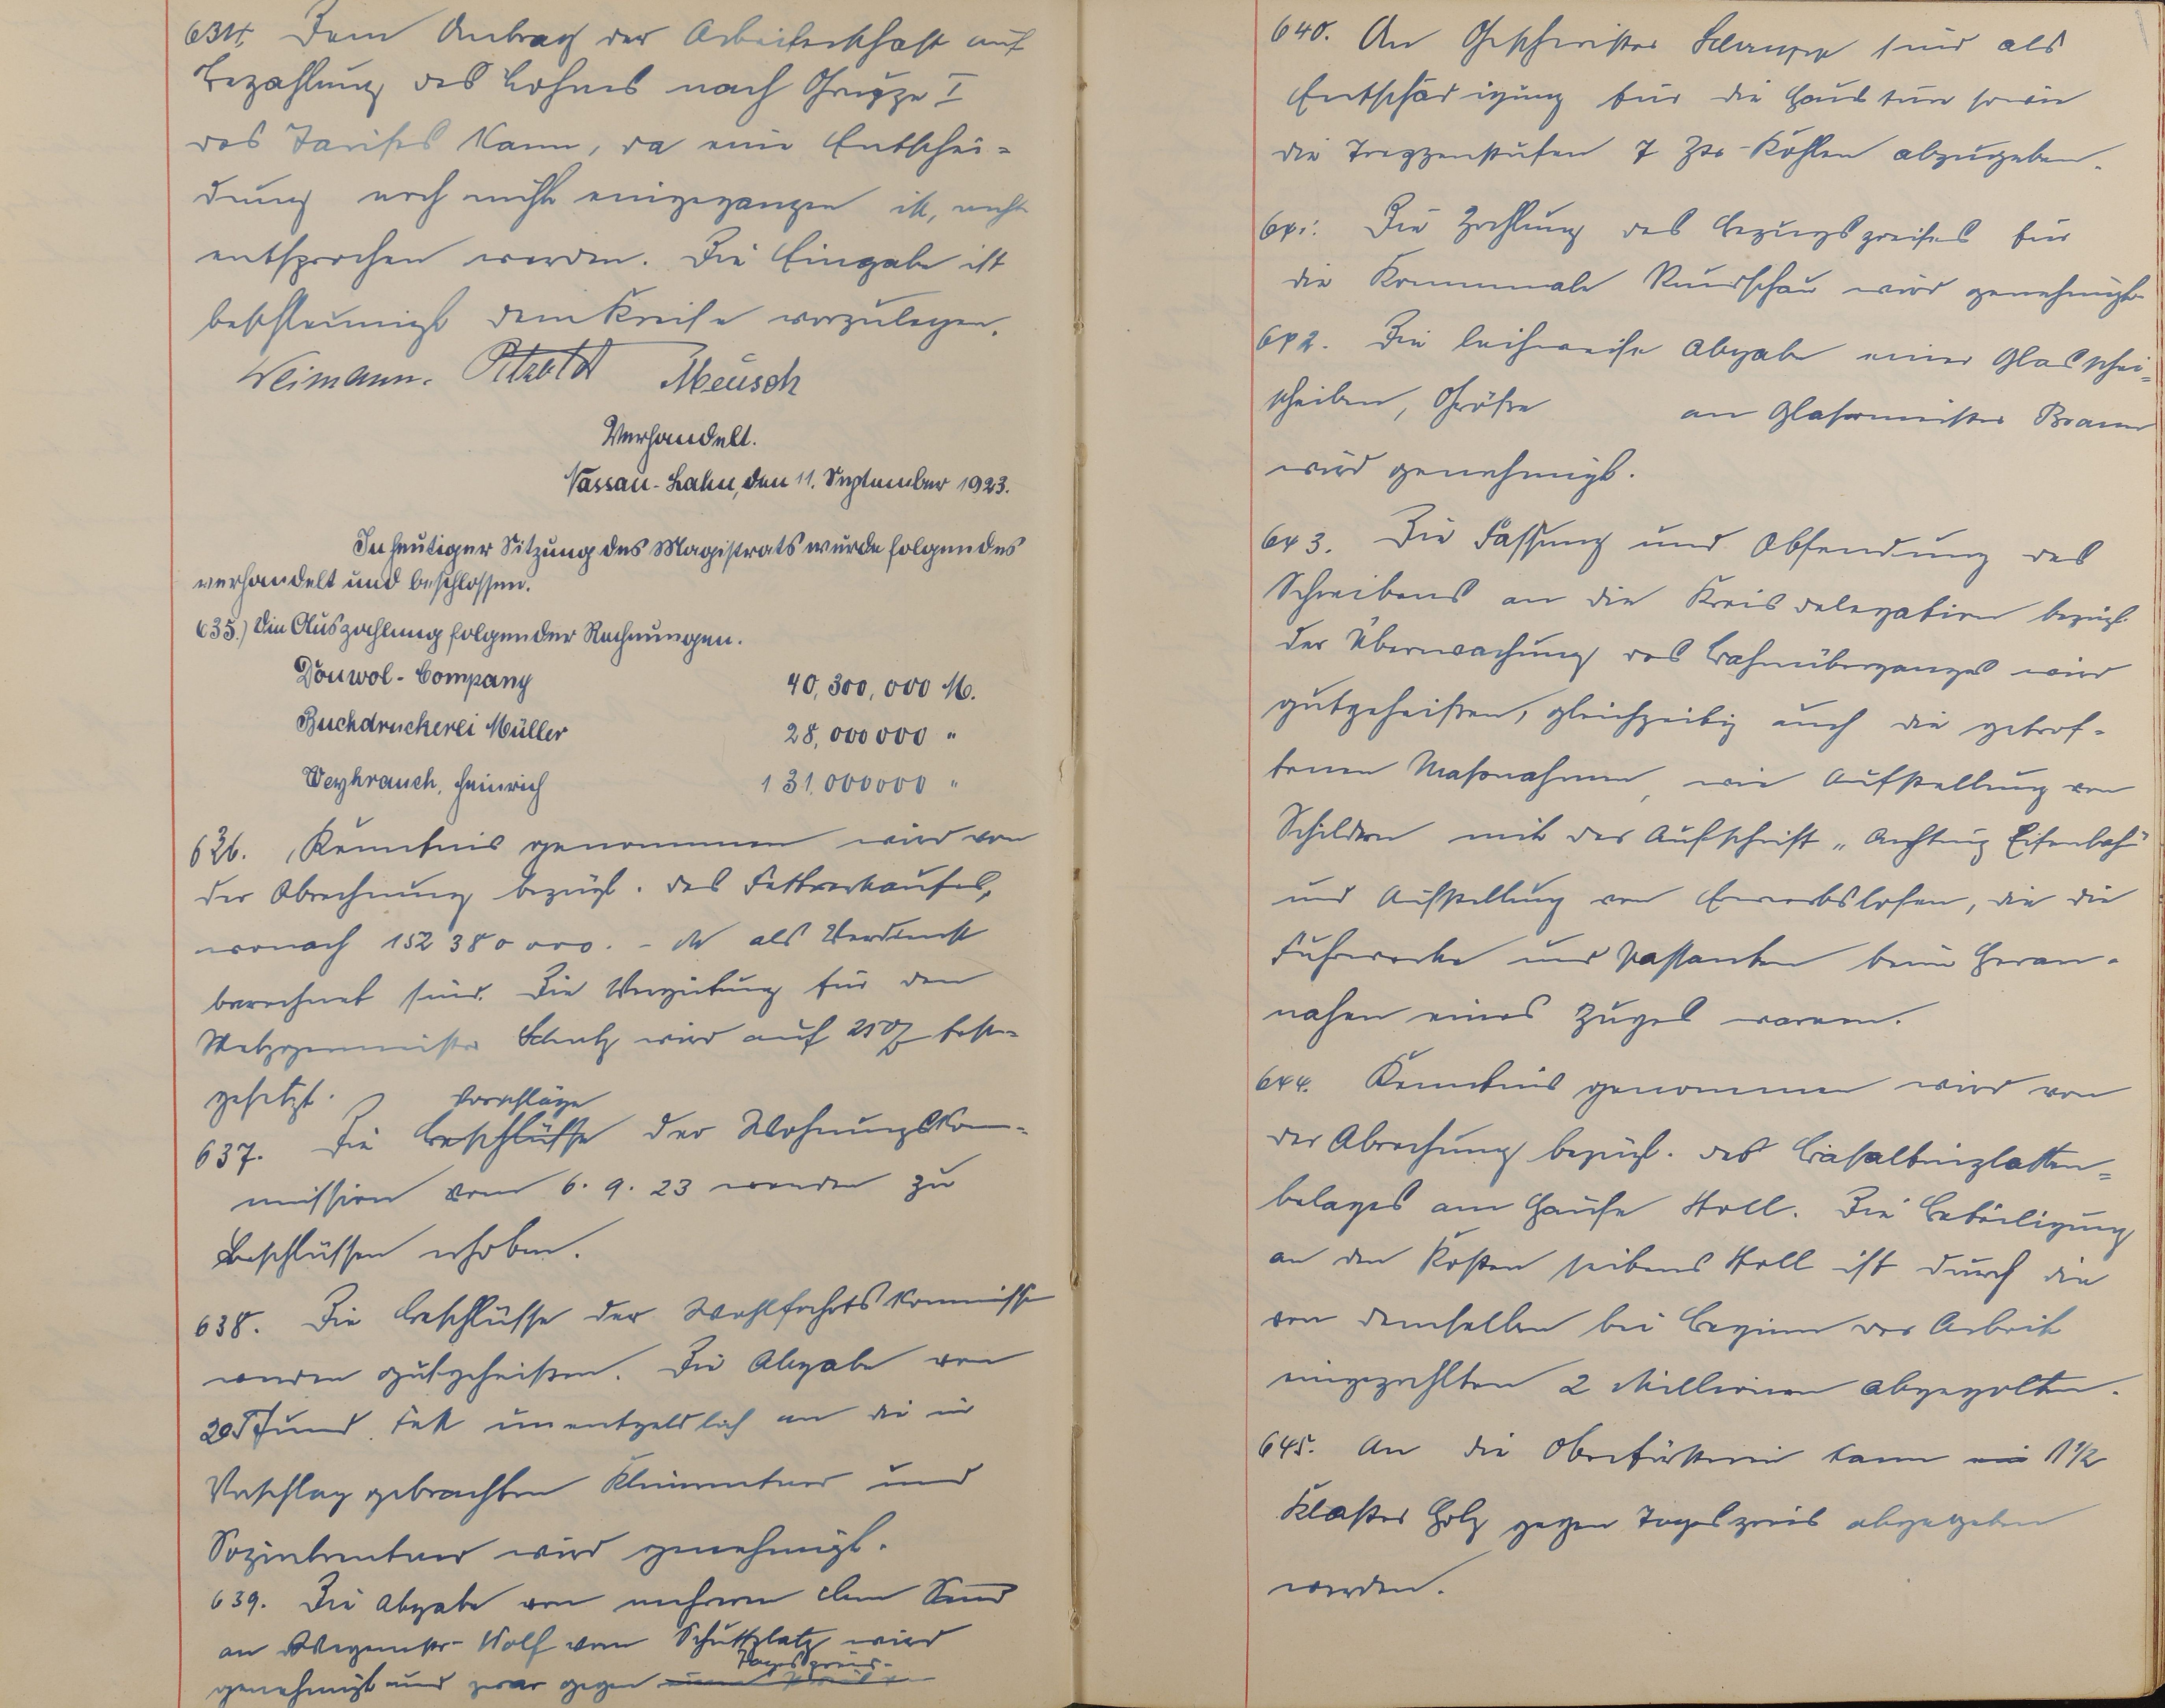 634. Dem Antrag der Arbeiterschaft auf
Bezahlung des Lohnes nach Gruppe I
des Tarifes kann, da eine Entschei-
dung noch nicht eingegangen ist, nicht
entsprochen werden. Die Eingabe ist
beschleunigt dem Kreise vorzulegen.
Weimann. Meusch
Verhandelt.
Nassau-Lahn, den 11. September 1923.
In heutiger Sitzung des Magistrats wurde folgendes
verhandelt und beschlossen.
635.) Die Auszahlung folgender Rechnungen.
Donwol-Company 40,300,000 M.
Buchdruckerei Müller 28,000000 "
Weyhrauch, Heinrich 131.000000 "
636. Kenntnis genommen wird von
der Abrechnung bezügl. des Fettverkaufes,
wonach 152 380 000.- M als Verdienst
berechnet sind. Die Vergütung für den
Metzgermeister Schulz wird auf 25% fest-
gesetzt.
Vorschläge
637. Die Beschlüsse der Wohnungskom-
mission vom 6. 9. 23 werden zu
Beschlüssen erhoben.
638. Die Beschlüsse der Wohlfahrtskommiss
werden gutgeheißen. Die Abgabe von
20 Pfund Fett unentgeldlich an die in
Vorschlag gebrachten Kleinrentner und
Sozialrentner wird genehmigt.
639. Die Abgabe von mehreren cbm Sand
an Wegemstr. Wolf vom Schuttplatz wird
Tagespreis.
genehmigt und zwar gegen
640. An Geschwister sind als
Entschädigung für die Haustür sowie
die Treppenstufen 7 Ztr-Kohlen abzugeben.
641. Die Zahlung des Bezugspreises für
die Kommunale Rundschau wird genehmigt
642. Die leihweise Abgabe einer Glasschei-
scheiben, Größe an Glasermeister Braun
wird genehmigt.
643. Die Fassung und Absendung des
Schreibens an die Kreisdelegation bezügl.
der Überwachung des Bahnüberganges wird
gutgeheißen, gleichzeitig auch die getrof-
fenen Maßnahmen, wie Aufstellung von
Schildern mit der Aufschrift „Achtung Eisenbah"
und Aufstellung von Erwerbslosen, die die
Fuhrwerke und Passanten beim Heran-
nahen eines Zuges warnen.
644. Kenntnis genommen wird von
der Abrechnung bezügl. des Basaltinplatten-
belages am Hause Stoll. Die Beteiligung
an den Kosten seitens Stoll ist durch die
von demselben bei Beginn der Arbeit
eingezahlten 2 Millionen abgegolten.
645. An die Oberförsterei kann ein 1 1/2
Klafter Holz gegen Tagespreis abgegeben
werden.